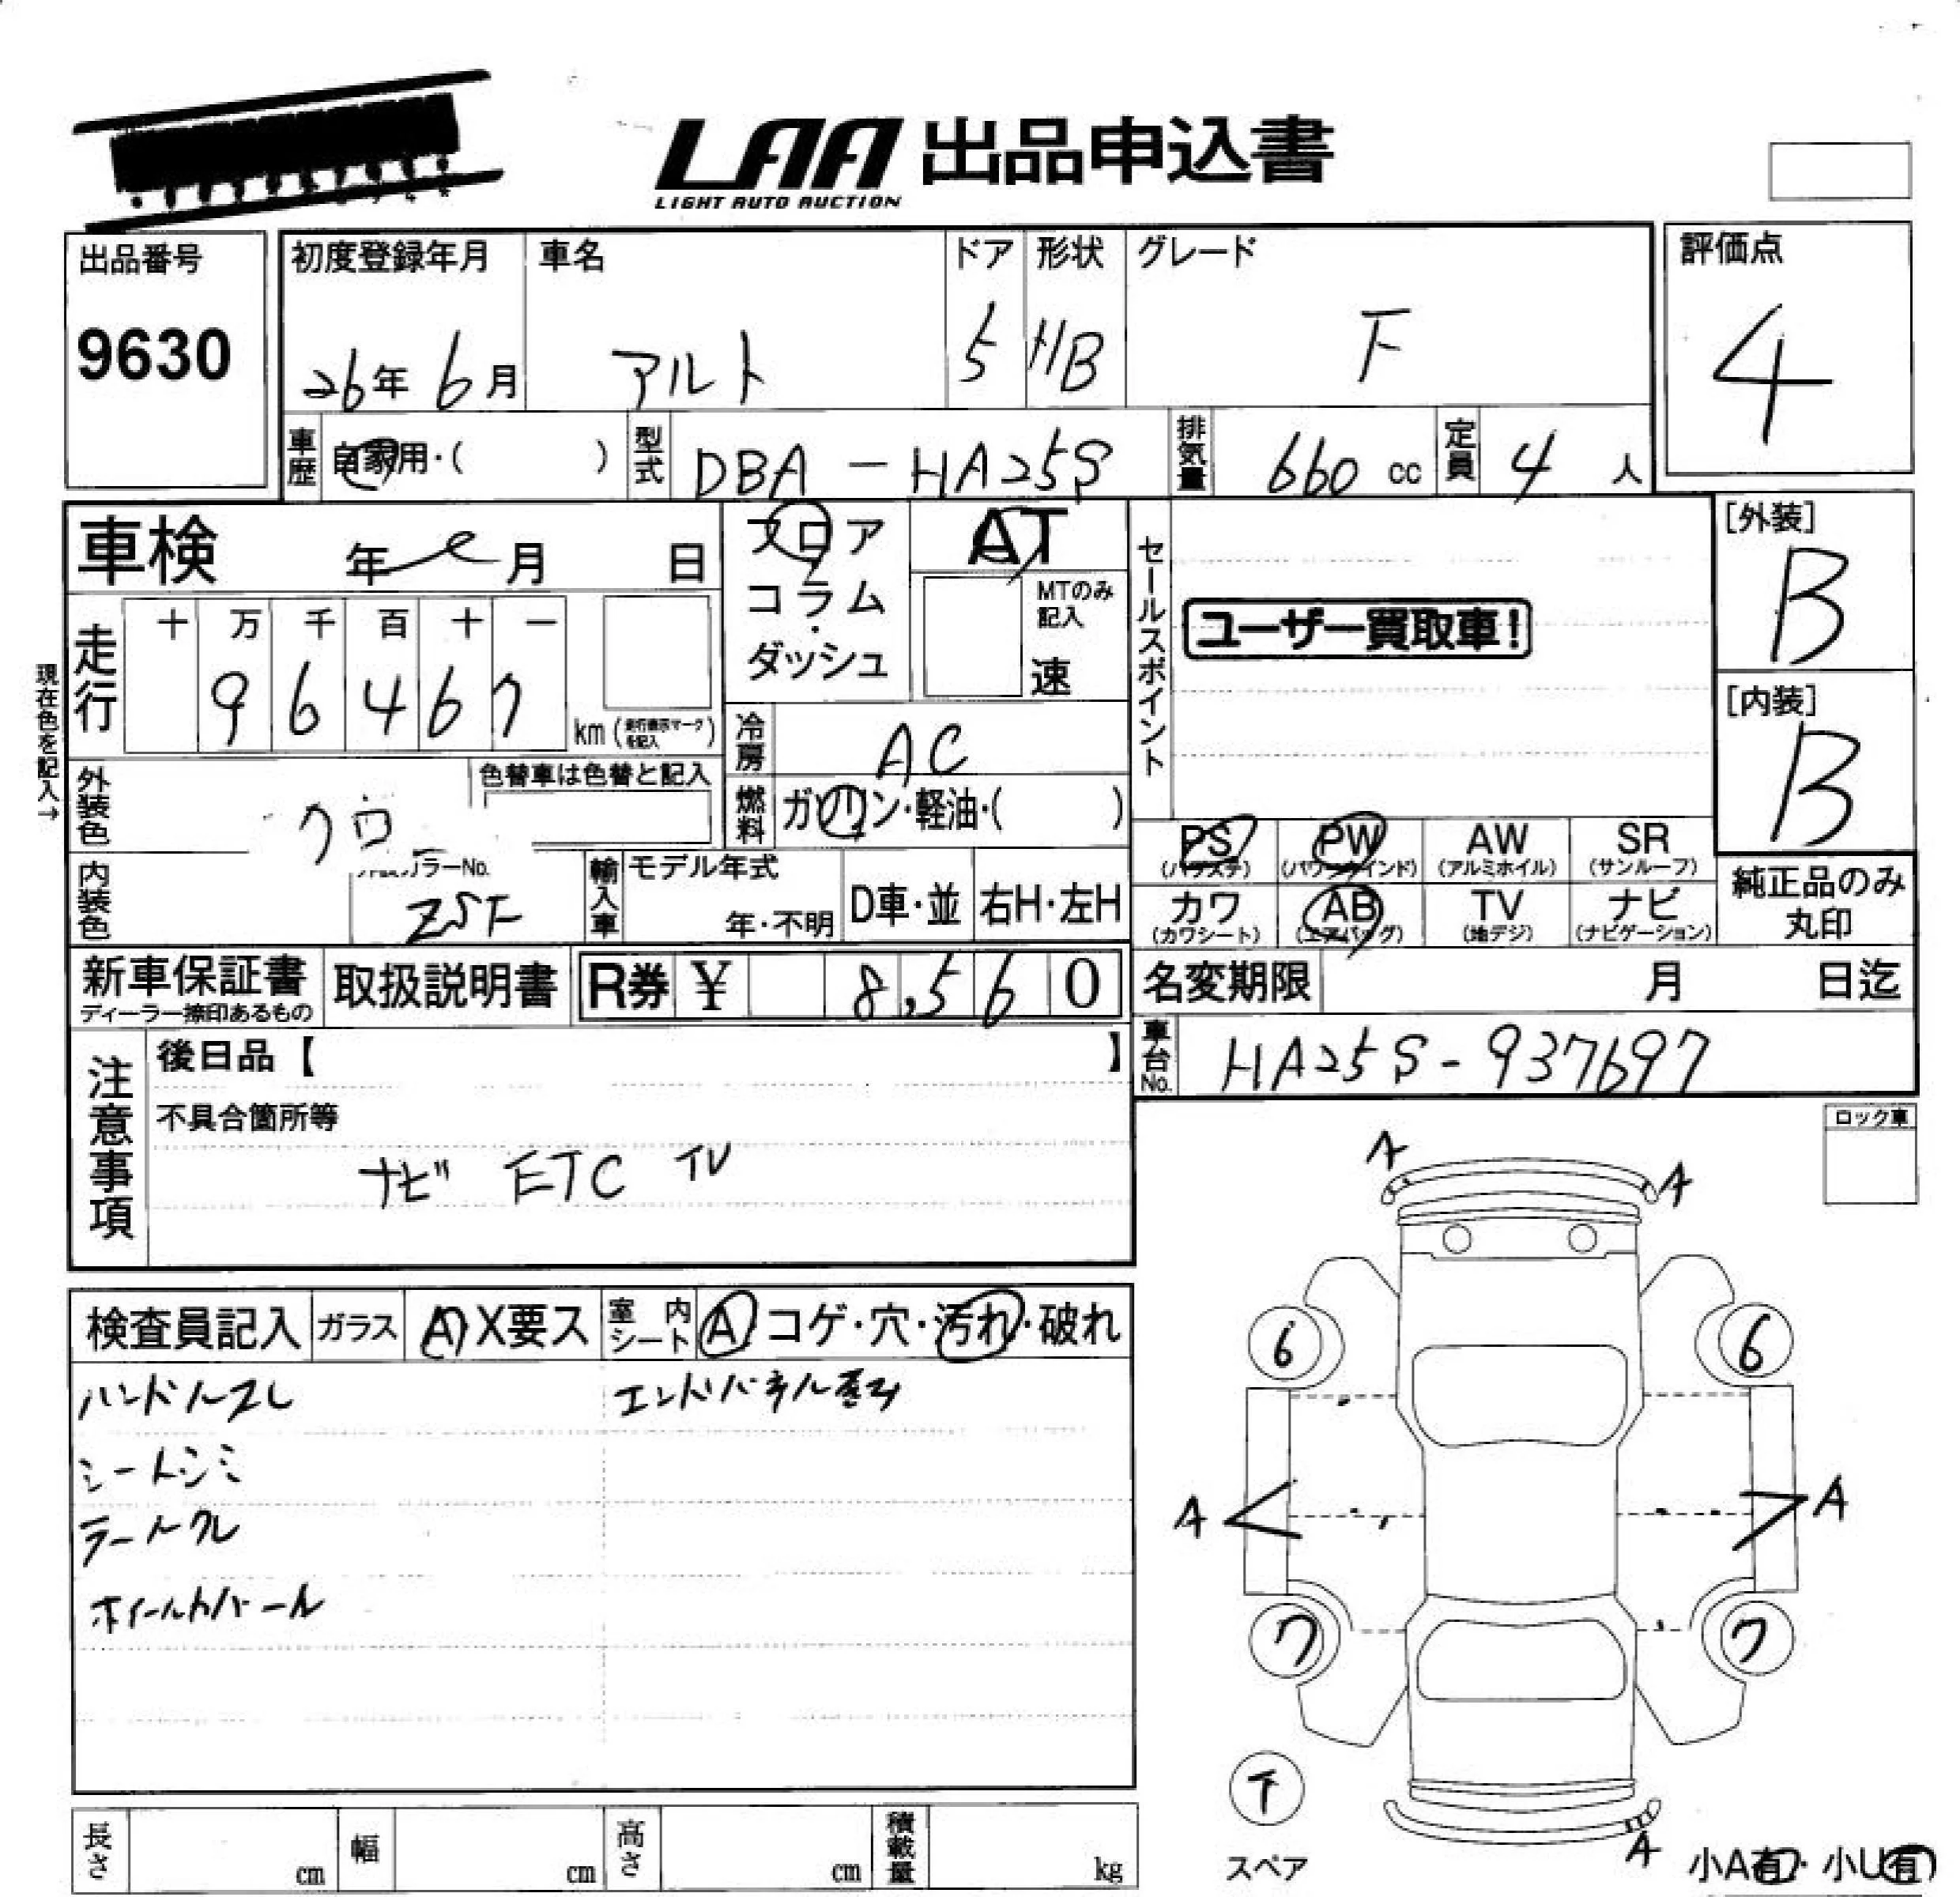 LAA 出品申込書
LIGHT AUTO AUCTION
出品番号
9630
初度登録年月
26年 6月
車名
アルト
ドア
5
形状
HB
グレード
F
評価点
4
車歴
自家用・( )
型式
DBA-HA25S
排気量
660 cc
定員
4 人
車検 年 月 日
フロア
コラム
・
ダッシュ
AT
MTのみ
記入
速
セールスポイント
ユーザー買取車!
[外装]
B
[内装]
B
現在色を記入→
走行
十 万 千 百 十 一
9 6 4 6 7
km (走行表示マークを記入)
冷房
AC
外装色
クロ
色替車は色替と記入
燃料
ガソリン・軽油・( )
PS
(パワステ)
PW
(パワーウインド)
AW
(アルミホイル)
SR
(サンルーフ)
カワ
(カワシート)
AB
(エアバッグ)
TV
(地デジ)
ナビ
(ナビゲーション)
純正品のみ
丸印
内装色
カラーNo.
ZSF
輸入車
モデル年式
年・不明
D車・並
右H・左H
新車保証書
ディーラー捺印あるもの
取扱説明書
R券 ¥ 8,560
名変期限 月 日迄
車台No.
HA25S-937697
注意事項
後日品【 】
不具合箇所等
ナビ ETC TV
ロック車
A
A
検査員記入
ガラス
A X要ス
室内シート
A コゲ・穴・汚れ・破れ
ハンドルスレ
エンドパネル歪み
シートシミ
ホイールカバー
6
6
A
A
ワ
ワ
下
スペア
A
小A有・小U有
長さ
cm
幅
cm
高さ
cm
積載量
kg